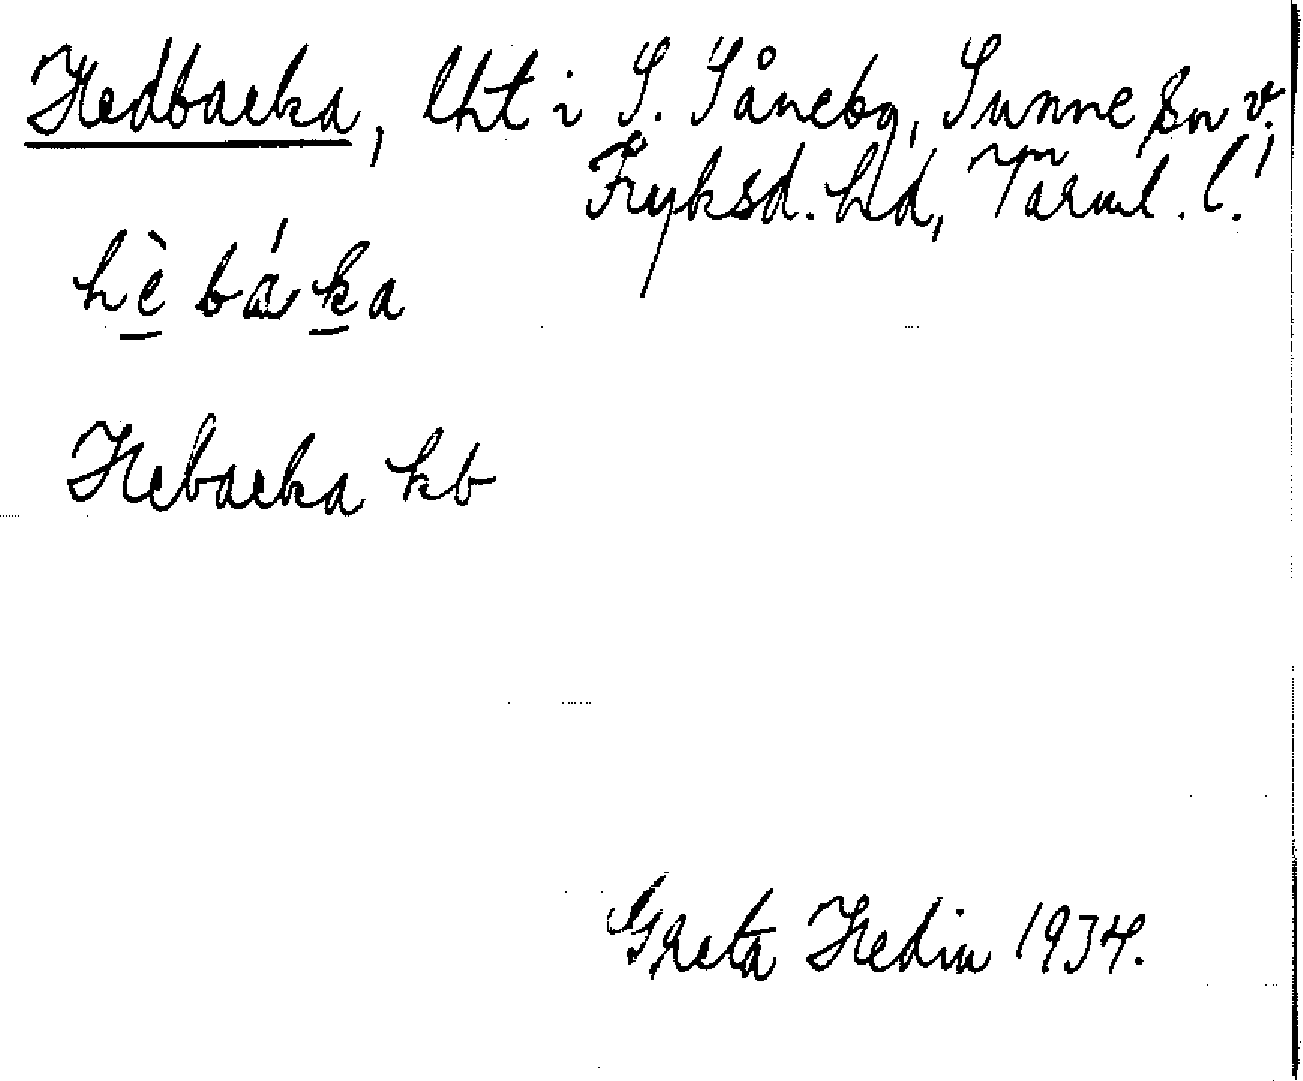 Hedbacka, lht i S. Såneby, Sunne sn v.
Fryksd. hd, Värml. l.
hè báka
Hebacka kb
Greta Hedin 1934.